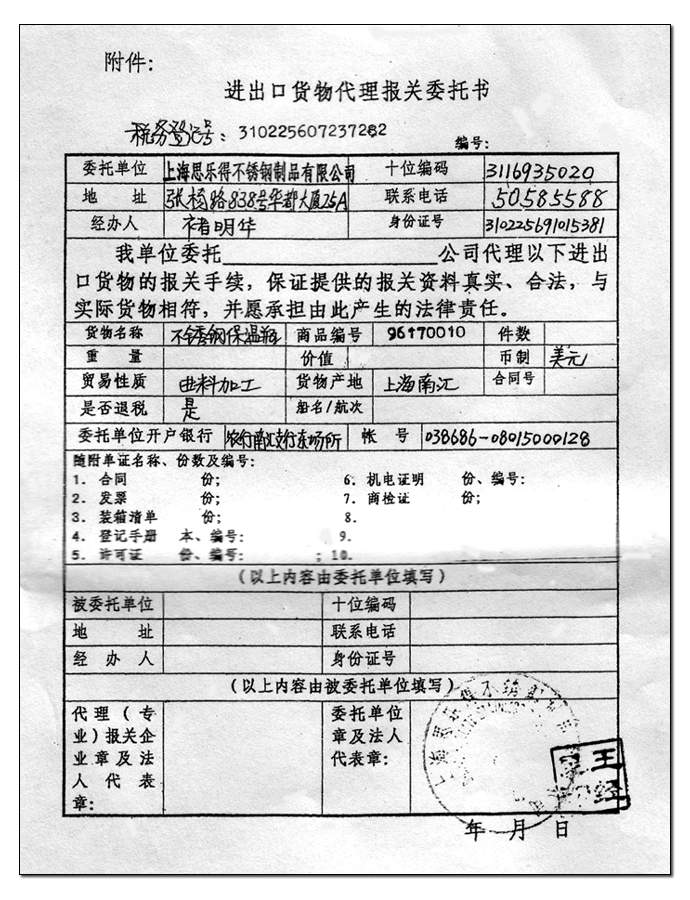 附件：
进出口货物代理报关委托书
税务登记号：310225607237282
编号：
委托单位 上海思乐得不锈钢制品有限公司 十位编码 3116935020
地 址 张杨路838号华都大厦25A 联系电话 50585588
经办人 褚明华 身份证号 310225691015381
我单位委托____________公司代理以下进出
口货物的报关手续，保证提供的报关资料真实、合法，与
实际货物相符，并愿承担由此产生的法律责任。
货物名称 不锈钢保温瓶 商品编号 96170010 件数
重 量 价值 币制 美元
贸易性质 进料加工 货物产地 上海南汇 合同号
是否退税 是 船名/航次
委托单位开户银行 农行南汇支行东场所 帐 号 038686-08015000128
随附单证名称、份数及编号：
1. 合同 份； 6. 机电证明 份、编号：
2. 发票 份； 7. 商检证 份；
3. 装箱清单 份； 8.
4. 登记手册 本、编号： 9.
5. 许可证 份、编号： ；10.
（以上内容由委托单位填写）
被委托单位 十位编码
地 址 联系电话
经 办 人 身份证号
（以上内容由被委托单位填写）
代理（专 委托单位
业）报关企 章及法人
业章及法 代表章：
人代表
章：
年 月 日